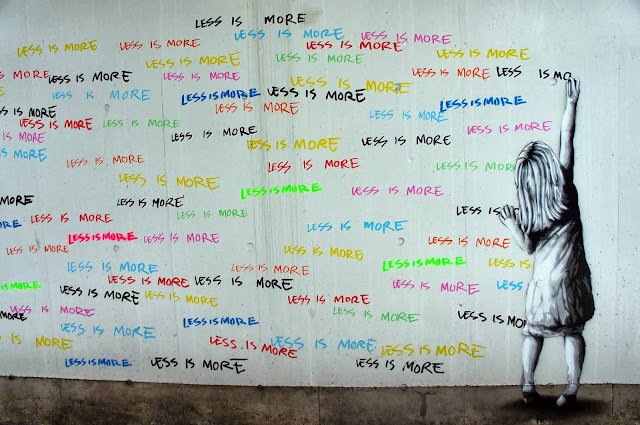 LESS IS MORE
LESS IS MORE
LESS IS MORE
LESS IS MORE
LESS IS MORE
LESS IS MORE
LESS IS MORE
LESS IS MORE
LESS IS MORE
ESS IS MORE
LESS IS MORE
LESS IS MORE
LESS IS MORE
LESS IS MO
LESS IS MORE
LESS IS MORE
LESS IS MORE
LESS IS MORE
LESS IS MORE
LESS IS MORE
ESS IS MORE
LESS IS MORE
LESS IS MORE
LESS IS MORE
LESS IS MORE
SS IS MORE
LESS IS MORE
LESS IS MORE
LESS IS MORE
SS IS MORE
LESS IS MORE
LESS IS MORE
LESS IS MORE
LESS IS MORE
LESS IS MORE
LESS IS MORE
MORE
LESS IS MORE
LESS IS MORE
LESS IS
LESS IS MORE
LESS IS MORE
MORE
LESS IS MORE
LESS IS MORE
LESS IS MORE
LESS IS MORE
LESS IS MORE
LESS IS MORE
LESS IS MORE
LESS IS MORE
LESS IS
MORE
LESS IS MORE
LESS IS MORE
LESS IS MORE
LESS
LESS IS MORE
LESS IS MORE
LESS IS MORE
LESS IS MORE
LESS IS MORE
LESS IS MO
LESS IS MORE
LESS IS MORE
S IS MORE
LESS IS MORE
LESS IS MORE
LESS IS MORE
LESS IS MORE
LESS IS MORE
LESS IS MORE